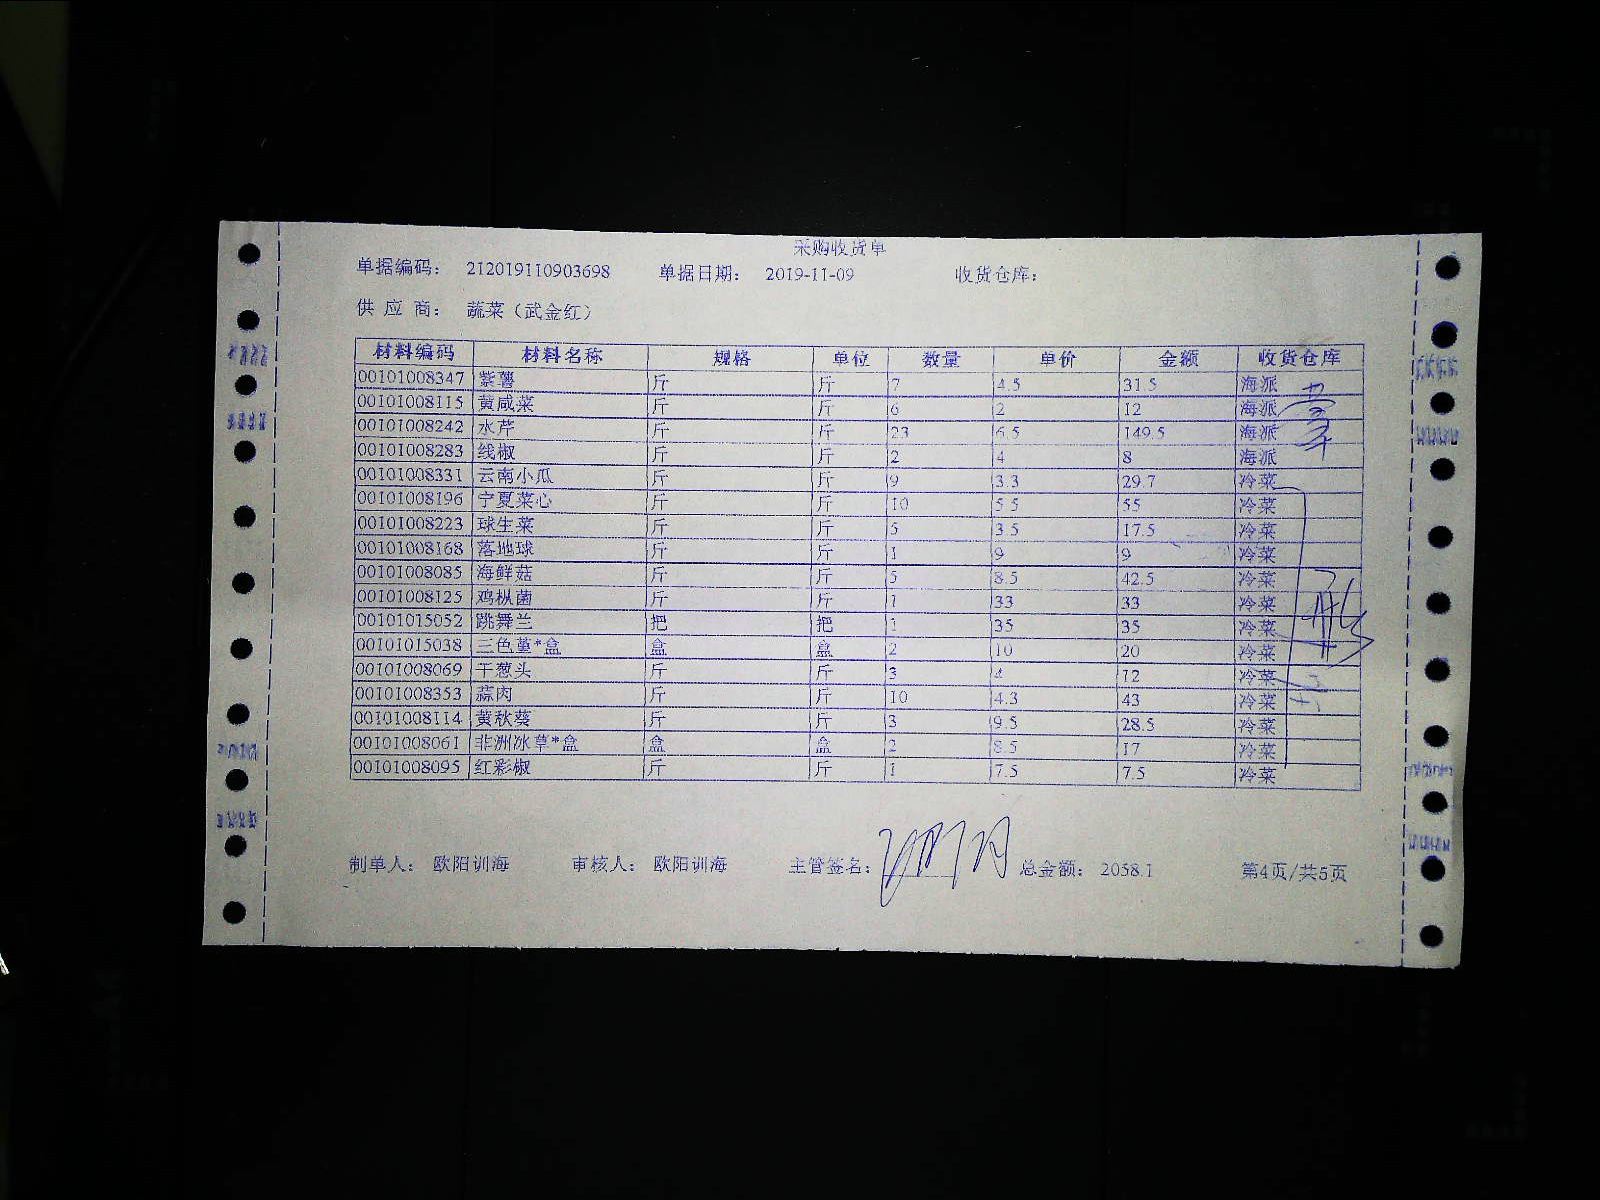 采购收货单
单据编码： 212019110903698 单据日期： 2019-11-09 收货仓库：
供 应 商： 蔬菜（武金红）
材料编码 材料名称 规格 单位 数量 单价 金额 收货仓库
00101008347 紫薯 斤 斤 7 4.5 31.5 海派
00101008115 黄咸菜 斤 斤 6 2 12 海派
00101008242 水芹 斤 斤 23 6.5 149.5 海派
00101008283 线椒 斤 斤 2 4 8 海派
00101008331 云南小瓜 斤 斤 9 3.3 29.7 冷菜
00101008196 宁夏菜心 斤 斤 10 5.5 55 冷菜
00101008223 球生菜 斤 斤 5 3.5 17.5 冷菜
00101008168 落地球 斤 斤 1 9 9 冷菜
00101008085 海鲜菇 斤 斤 5 8.5 42.5 冷菜
00101008125 鸡枞菌 斤 斤 1 33 33 冷菜
00101015052 跳舞兰 把 把 1 35 35 冷菜
00101015038 三色堇*盒 盒 盒 2 10 20 冷菜
00101008069 干葱头 斤 斤 3 4 12 冷菜
00101008353 蒜肉 斤 斤 10 4.3 43 冷菜
00101008114 黄秋葵 斤 斤 3 9.5 28.5 冷菜
00101008061 非洲冰草*盒 盒 盒 2 8.5 17 冷菜
00101008095 红彩椒 斤 斤 1 7.5 7.5 冷菜
制单人： 欧阳训海 审核人： 欧阳训海 主管签名： 总金额： 2058.1 第4页/共5页